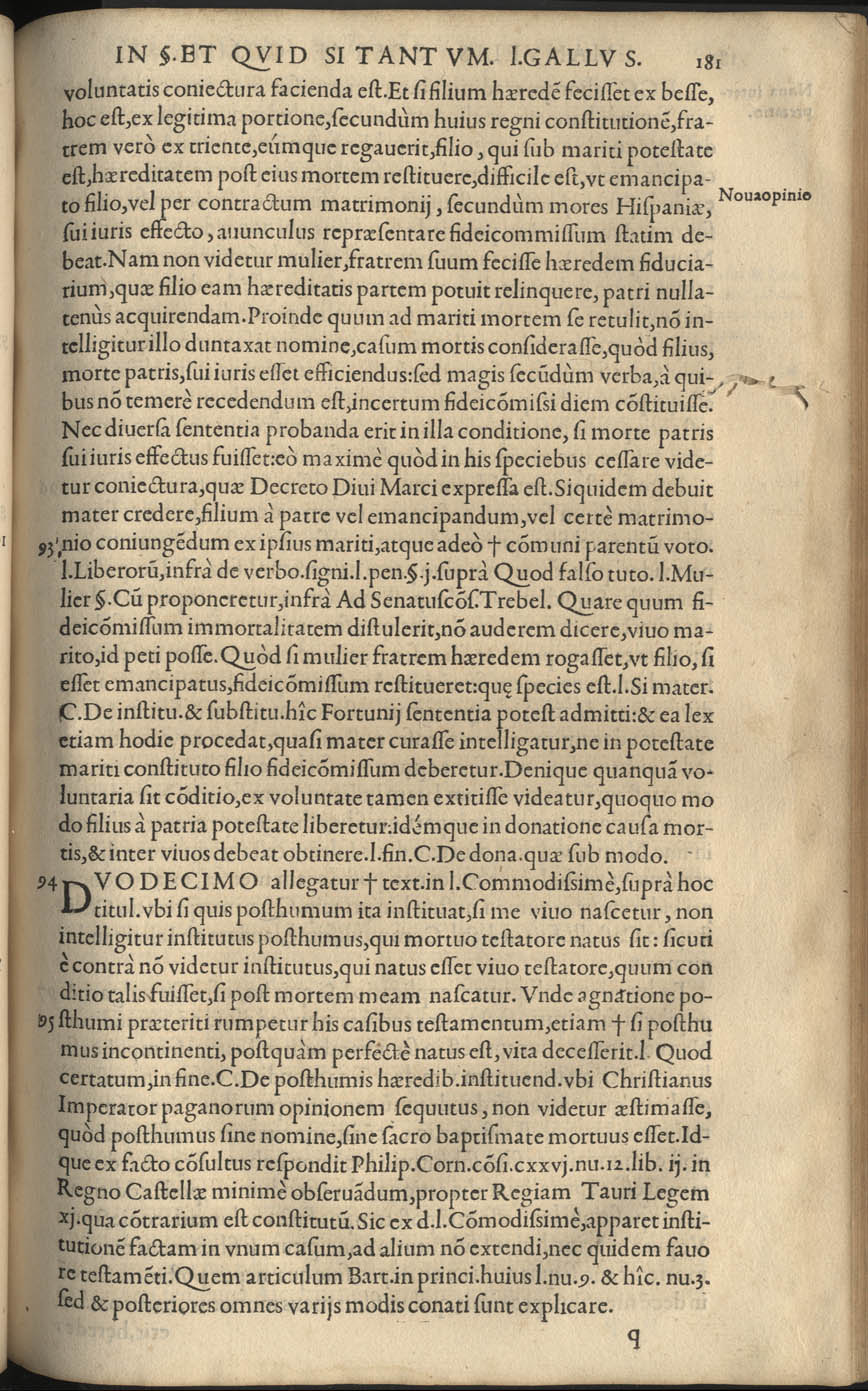 IN §.ET QVID SI TANTVM. l.GALLVS. 181
voluntatis coniectura facienda eſt.Et ſi filium hæredẽ feciſſet ex beſſe,
hoc eſt,ex legitima portione,ſecundùm huius regni conſtitutionẽ,fra-
trem verò ex triente,eúmque rogauerit,filio, qui ſub mariti poteſtate
eſt,hæreditatem poſt eius mortem reſtituere,difficile eſt,vt emancipa-
to filio,vel per contractum matrimonij, ſecundùm mores Hiſpaniæ,
Nouaopinio
ſui iuris effecto, auunculus repræſentare fideicommiſſum ſtatim de-
beat.Nam non videtur mulier,fratrem ſuum feciſſe hæredem fiducia-
rium,quæ filio eam hæreditatis partem potuit relinquere, patri nulla-
tenùs acquirendam.Proinde quum ad mariti mortem ſe retulit,nõ in-
telligitur illo duntaxat nomine,caſum mortis conſideraſſe,quòd filius,
morte patris,ſui iuris eſſet efficiendus:ſed magis ſecũdùm verba,à qui-
bus nõ temerè recedendum eſt,incertum fideicõmiſsi diem cõſtituiſſe.
Nec diuerſa ſententia probanda erit in illa conditione, ſi morte patris
ſui iuris effectus fuiſſet:eò maximè quòd in his ſpeciebus ceſſare vide-
tur coniectura,quæ Decreto Diui Marci expreſſa eſt.Siquidem debuit
mater credere,filium à patre vel emancipandum,vel certè matrimo-
93 nio coniungẽdum ex ipſius mariti,atque adeò † cõmuni parentũ voto.
l.Liberorũ,infrà de verbo.ſigni.l.pen.§.j.ſuprà Quod falſo tuto. l.Mu-
lier §.Cũ proponeretur,infrà Ad Senatuſcõſ.Trebel. Quare quum fi-
deicõmiſſum immortalitatem diſtulerit,nõ auderem dicere,viuo ma-
rito,id peti poſſe.Quòd ſi mulier fratrem hæredem rogaſſet,vt filio, ſi
eſſet emancipatus,fideicõmiſſum reſtitueret:quę ſpecies eſt.l.Si mater.
C.De inſtitu.& ſubſtitu.hîc Fortunij ſententia poteſt admitti:& ea lex
etiam hodie procedat,quaſi mater curaſſe intelligatur,ne in poteſtate
mariti conſtituto filio fideicõmiſſum deberetur.Denique quanquã vo-
luntaria ſit cõditio,ex voluntate tamen extitiſſe videatur,quoquo mo
do filius à patria poteſtate liberetur:idémque in donatione cauſa mor-
tis,& inter viuos debeat obtinere.l.fin.C.De dona.quæ ſub modo.
94 DVODECIMO allegatur † text.in l.Commodiſsimè,ſuprà hoc
titul.vbi ſi quis poſthumum ita inſtituat,ſi me viuo naſcetur, non
intelligitur inſtitutus poſthumus,qui mortuo teſtatore natus ſit: ſicuti
è contrà nõ videtur inſtitutus,qui natus eſſet viuo teſtatore,quum con
ditio talis fuiſſet,ſi poſt mortem meam naſcatur. Vnde agnatione po-
95 ſthumi præteriti rumpetur his caſibus teſtamentum,etiam † ſi poſthu
mus incontinenti, poſtquàm perfectè natus eſt, vita deceſſerit.l. Quod
certatum,in fine.C.De poſthumis hæredib.inſtituend.vbi Chriſtianus
Imperator paganorum opinionem ſequutus, non videtur æſtimaſſe,
quòd poſthumus ſine nomine,ſine ſacro baptiſmate mortuus eſſet.Id-
que ex facto cõſultus reſpondit Philip.Corn.cõſi.cxxvj.nu.12.lib. ij. in
Regno Caſtellæ minimè obſeruãdum,propter Regiam Tauri Legem
xj.qua cõtrarium eſt conſtitutũ. Sic ex d.l.Cõmodiſsimè,apparet inſti-
tutionẽ factam in vnum caſum,ad alium nõ extendi,nec quidem fauo
re teſtamẽti.Quem articulum Bart.in princi.huius l.nu.9. & hîc. nu.3.
ſed & poſteriores omnes varijs modis conati ſunt explicare.
q